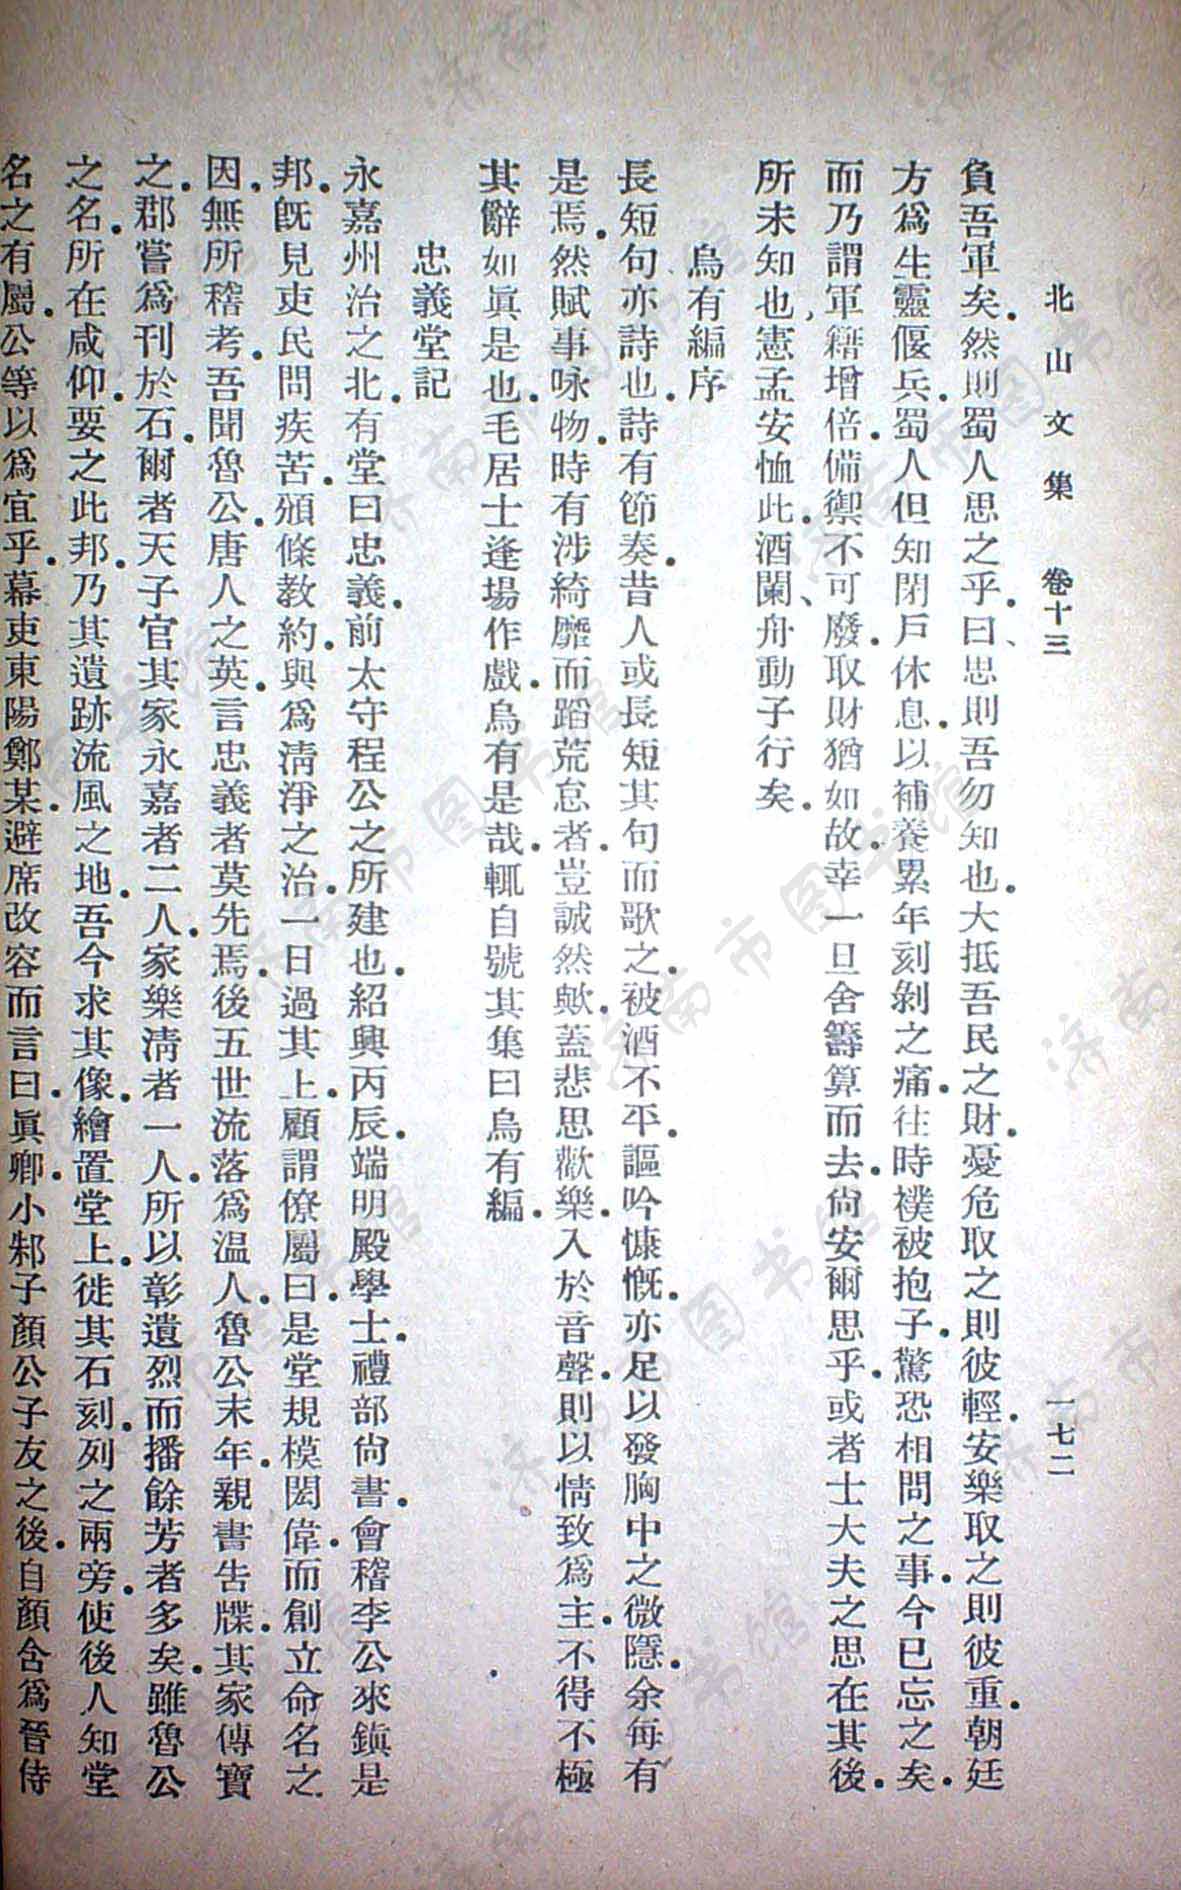 北山文集　卷十三　一七二
負吾軍矣．然則蜀人思之乎．曰、思則吾勿知也．大抵吾民之財．憂危取之則彼輕．安樂取之則彼重．朝廷
方爲生靈偃兵．蜀人但知閉戶休息．以補養累年刻剝之痛．往時襆被抱子．驚恐相問之事．今已忘之矣．
而乃謂軍籍增倍．備禦不可廢．取財猶如故．幸一旦舍籌算而去．尙安爾思乎．或者士大夫之思在其後．
所未知也．憲孟安恤此．酒闌、舟動子行矣．
烏有編序
長短句亦詩也．詩有節奏．昔人或長短其句而歌之．被酒不平．謳吟慷慨．亦足以發胸中之微隱．余每有
是焉．然賦事咏物．時有涉綺靡而蹈荒怠者．豈誠然歟．蓋悲思歡樂．入於音聲．則以情致爲主．不得不極
其辭如眞是也．毛居士逢場作戲．烏有是哉．輒自號其集曰烏有編．
忠義堂記
永嘉州治之北．有堂曰忠義．前太守程公之所建也．紹興丙辰．端明殿學士．禮部尙書．會稽李公來鎭是
邦．旣見吏民問疾苦．頒條教約．與爲淸淨之治．一日過其上．顧謂僚屬曰．是堂規模閎偉．而創立命名之
因．無所稽考．吾聞魯公．唐人之英．言忠義者莫先焉．後五世流落爲温人．魯公末年．親書告牒．其家傳寶
之．郡嘗爲刊於石．爾者天子官其家永嘉者二人．家樂淸者一人．所以彰遺烈而播餘芳者多矣．雖魯公
之名．所在咸仰．要之此邦．乃其遺跡流風之地．吾今求其像．繪置堂上．徙其石刻．列之兩旁．使後人知堂
名之有屬．公等以爲宜乎．幕吏東陽鄭某．避席改容而言曰．眞卿．小邾子顏公子友之後．自顏含爲晉侍